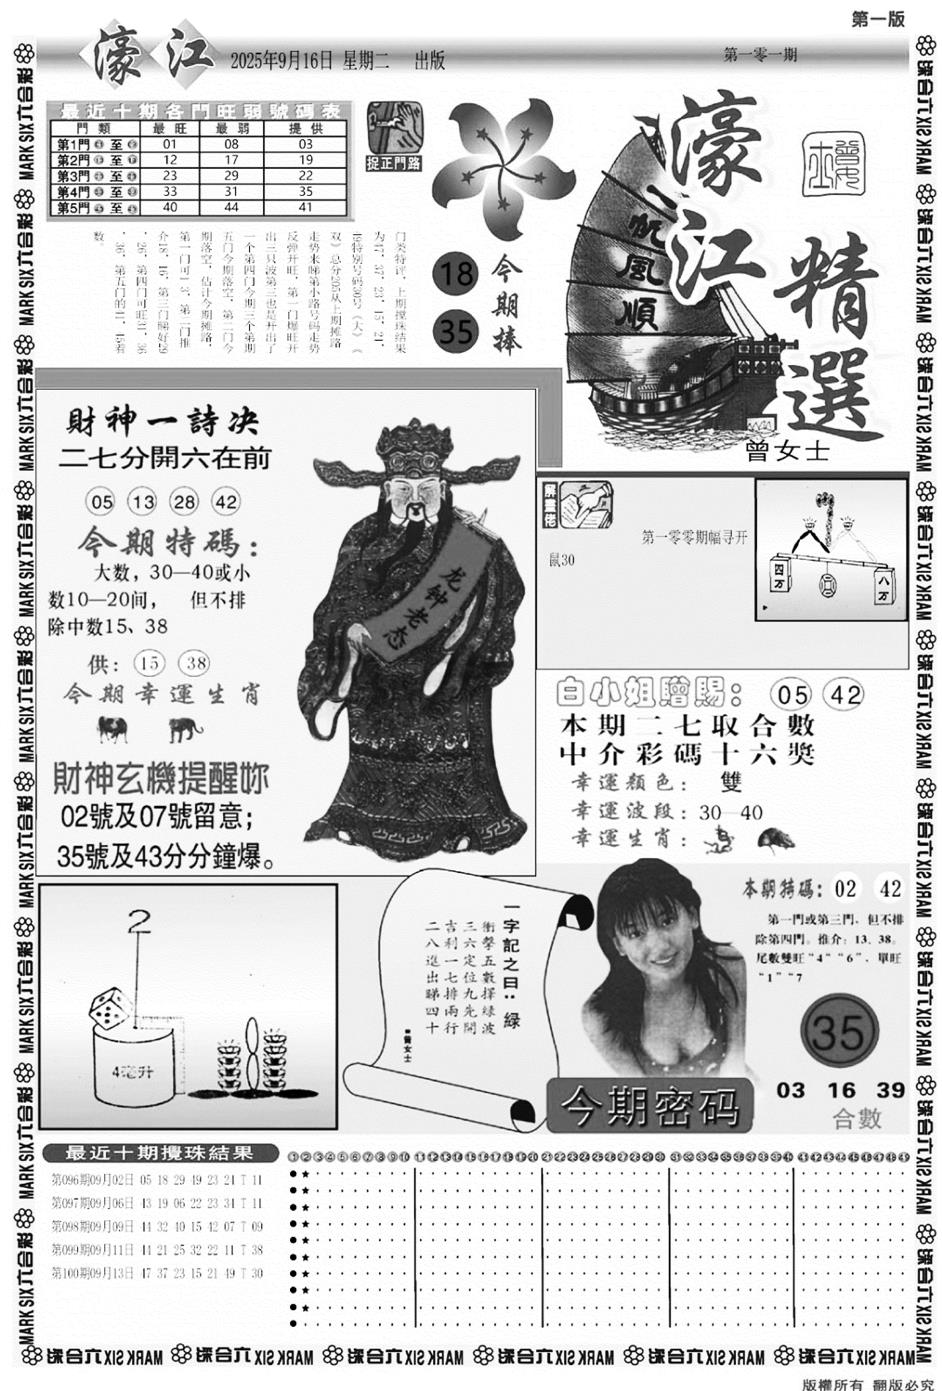 第一版
濠江
2025年9月16日 星期二 出版
第一零一期
最近十期各門旺弱號碼表
門類 最旺 最弱 提供
第1門 至 01 08 03
第2門 至 12 17 19
第3門 至 23 29 22
第4門 至 33 31 35
第5門 至 40 44 41
捉正門路
门类特评，上期搅珠结果
为47、37、23、15、21、
49特别号码30号（大）（
双）总分205从上期摊路
走势来睇第小路号码走势
反弹开旺，第一门爆旺开
出三只波第三也是开出了
一个第四门今期三个第期
五门今期落空，第二门今
期落空，估计今期摊路，
第一门可1、3，第二门推
介18、16，第三门睇好29
、26，第四门可旺31、36
、30，第五门的41、45着
数。
18
35
今期捧
一帆風順
濠江精選
曾女士
財神一詩决
二七分開六在前
05 13 28 42
今期特碼：
大数，30—40或小
数10—20间， 但不排
除中数15、38
供： 15 38
今期幸運生肖
財神玄機提醒妳
02號及07號留意；
35號及43分分鐘爆。
龙钟老态
解畫佬
第一零零期幅寻开
鼠30
四万
八万
白小姐贈賜： 05 42
本期二七取合數
中介彩碼十六獎
幸運顏色： 雙
幸運波段：30—40
幸運生肖：
2
4毫升
一字記之曰：綠
衝擊五數擇綠波
三六定位九先開
吉利一七排兩行
二八進出睇四十
■曾女士
本期特碼： 02 42
第一門或第三門，但不排
除第四門。推介：13、38。
尾數雙旺“4”“6”，單旺
“1”“7
35
今期密码
03 16 39
合數
最近十期攪珠結果
第096期09月02日 05 18 29 49 23 24 T 11
第097期09月06日 43 19 06 22 23 34 T 11
第098期09月09日 44 32 40 15 42 07 T 09
第099期09月11日 44 21 25 32 22 11 T 38
第100期09月13日 47 37 23 15 21 49 T 30
MARK SIX 六合彩
版權所有 翻版必究